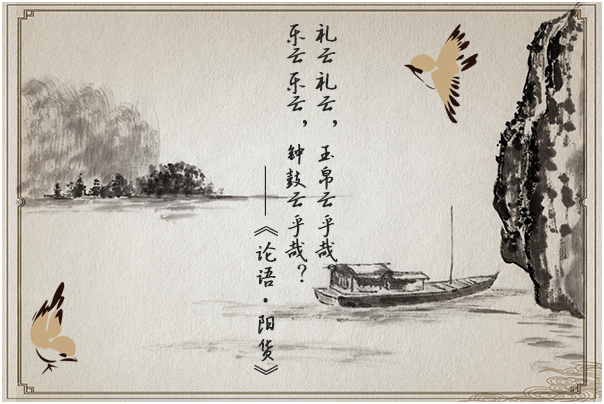 礼云礼云，玉帛云乎哉
乐云乐云，钟鼓云乎哉？
——《论语·阳货》